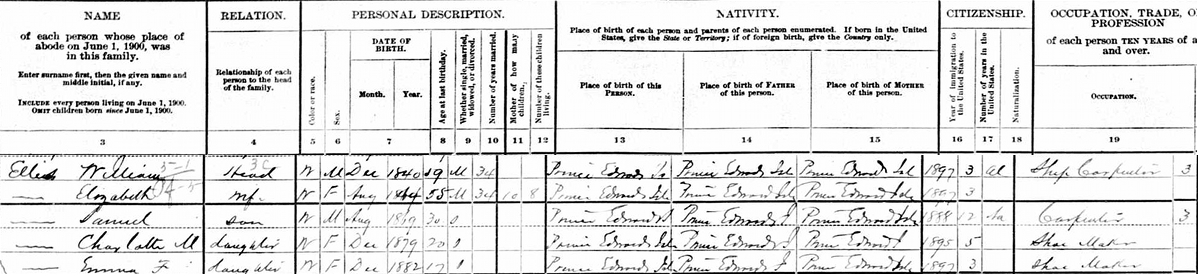 NAME RELATION. PERSONAL DESCRIPTION. NATIVITY. CITIZENSHIP. OCCUPATION, TRADE, O
PROFESSION
of each person whose place of abode on June 1, 1900, was in this family.
Enter surname first, then the given name and middle initial, if any.
INCLUDE every person living on June 1, 1900.
OMIT children born since June 1, 1900.
Relationship of each person to the head of the family.
Color or race.
Sex.
DATE OF BIRTH.
Month. Year.
Age at last birthday.
Whether single, married, widowed, or divorced.
Number of years married.
Mother of how many children.
Number of these children living.
Place of birth of each person and parents of each person enumerated. If born in the United
States, give the State or Territory; if of foreign birth, give the Country only.
Place of birth of this PERSON.
Place of birth of FATHER of this person.
Place of birth of MOTHER of this person.
Year of immigration to the United States.
Number of years in the United States.
Naturalization.
of each person TEN YEARS of a
and over.
OCCUPATION.
3 4 5 6 7 8 9 10 11 12 13 14 15 16 17 18 19
Ellis William Head W M Dec 1840 59 M 34 Prince Edward Is Prince Edward Isl Prince Edward Isl 1897 3 Al Ship Carpenter 3
Elizabeth wife W F Aug 1844 55 M 34 10 8 Prince Edward Isl Prince Edward Isl Prince Edward Isl 1897 3
Samuel son W M Aug 30 Prince Edward Prince Edward Prince Edward Isl 1888 12 Na Carpenter 3
Charlotte M daughter W F Dec 1879 20 Prince Edward Isl Prince Edward Prince Edward 1895 5 Shoe Maker
Emma F daughter W F Dec 1882 17 Prince Edward Isl Prince Edward Prince Edward Isl 1897 3 Shoe Maker